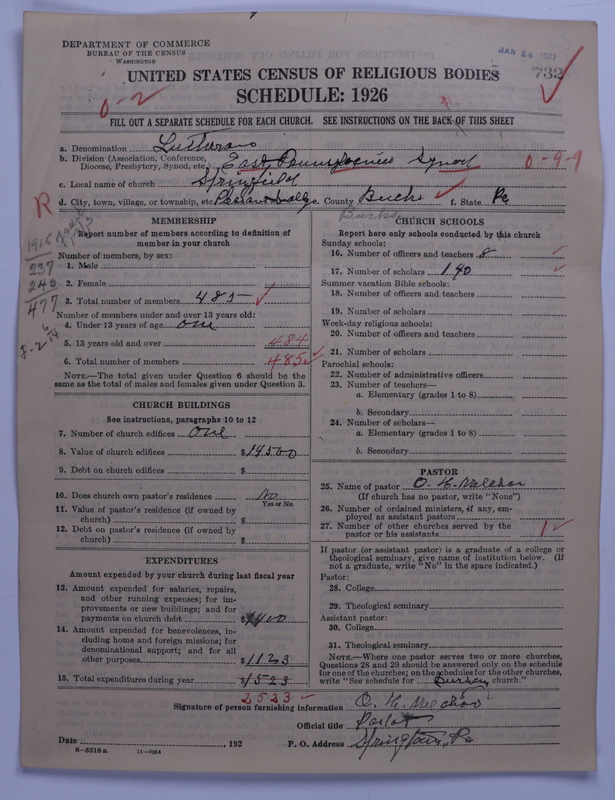 DEPARTMENT OF COMMERCE
BUREAU OF THE CENSUS
WASHINGTON
JAN 26 1927
732
UNITED STATES CENSUS OF RELIGIOUS BODIES
SCHEDULE: 1926
0-2
FILL OUT A SEPARATE SCHEDULE FOR EACH CHURCH. SEE INSTRUCTIONS ON THE BACK OF THIS SHEET
a. Denomination Lutheran
b. Division (Association, Conference, Diocese, Presbytery, Synod, etc.) East Pennsylvania Synod 0-9-9
c. Local name of church Springfield
d. City, town, village, or township, etc. Pleasant Valley e. County Bucks f. State Pa
Bucks
R
1916
237
240
477
MEMBERSHIP
Report number of members according to definition of
member in your church
Number of members, by sex:
1. Male
2. Female
3. Total number of members 485
Number of members under and over 13 years old:
4. Under 13 years of age one
5. 13 years old and over 484
6. Total number of members 485
NOTE.—The total given under Question 6 should be the
same as the total of males and females given under Question 3.
CHURCH BUILDINGS
See instructions, paragraphs 10 to 12
7. Number of church edifices one
8. Value of church edifices $14500
9. Debt on church edifices $
10. Does church own pastor's residence No
Yes or No
11. Value of pastor's residence (if owned by
church) $
12. Debt on pastor's residence (if owned by
church) $
EXPENDITURES
Amount expended by your church during last fiscal year
13. Amount expended for salaries, repairs,
and other running expenses; for im-
provements or new buildings; and for
payments on church debt $1400
14. Amount expended for benevolences, in-
cluding home and foreign missions; for
denominational support; and for all
other purposes $1123
15. Total expenditures during year $1523
2523
CHURCH SCHOOLS
Report here only schools conducted by this church
Sunday schools:
16. Number of officers and teachers 8
17. Number of scholars 140
Summer vacation Bible schools:
18. Number of officers and teachers
19. Number of scholars
Week-day religious schools:
20. Number of officers and teachers
21. Number of scholars
Parochial schools:
22. Number of administrative officers
23. Number of teachers—
a. Elementary (grades 1 to 8)
b. Secondary
24. Number of scholars—
a. Elementary (grades 1 to 8)
b. Secondary
PASTOR
25. Name of pastor O. H. Melchor
(If church has no pastor, write "None")
26. Number of ordained ministers, if any, em-
ployed as assistant pastors
27. Number of other churches served by the
pastor or his assistants 1
If pastor (or assistant pastor) is a graduate of a college or
theological seminary, give name of institution below. (If
not a graduate, write "No" in the space indicated.)
Pastor:
28. College
29. Theological seminary
Assistant pastor:
30. College
31. Theological seminary
NOTE.—Where one pastor serves two or more churches,
Questions 28 and 29 should be answered only on the schedule
for one of the churches; on the schedules for the other churches,
write "See schedule for church."
Signature of person furnishing information O. H. Melchor
Official title Pastor
Date , 192 P. O. Address Springtown, Pa
8-5518 a 11-9864